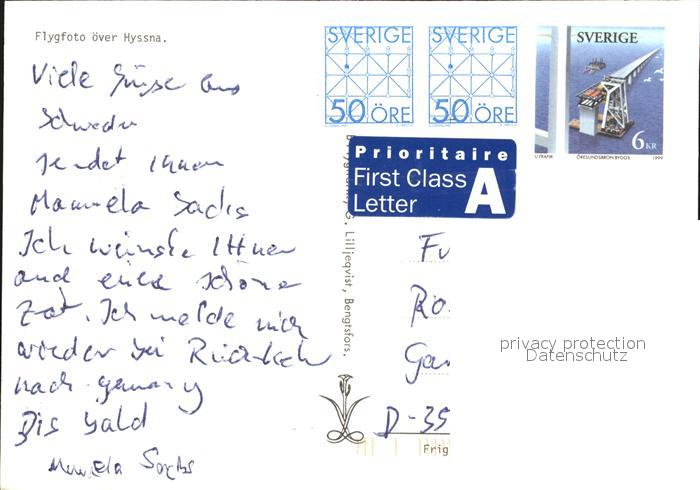 Flygfoto över Hyssna.
Viele Grüsse aus
Schweden
sendet Ihnen
Manuela Sachs
Ich wünsche Ihnen
und eine schöne
Zeit. Ich melde mich
wieder bei Rückkehr
nach Germany
Bis bald
Manuela Sachs
SVERIGE
50 ÖRE
SVERIGE
50 ÖRE
SVERIGE
6 KR
J FRANK ÖRESUNDSBRON BYGGS 1999
Prioritaire
First Class
Letter
A
G. Lilljeqvist, Bengtsfors.
Fu
Ro
Gar
D-35
Frig
privacy protection
Datenschutz